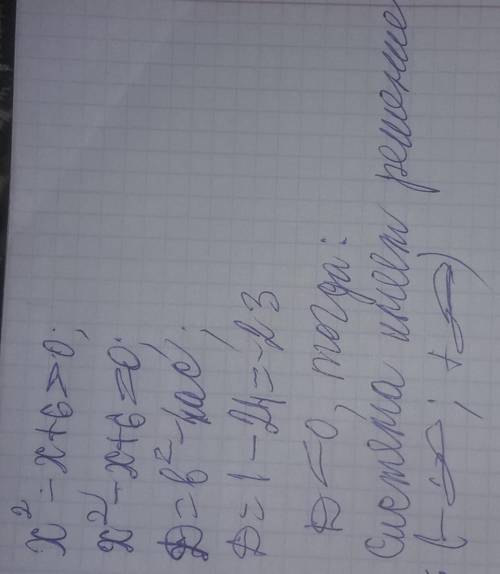 x² - x + 6 > 0;
x² - x + 6 = 0;
D = b² - 4ac;
D = 1 - 24 = -23
D < 0, тогда:
Система имеет решение
(-∞; +∞)